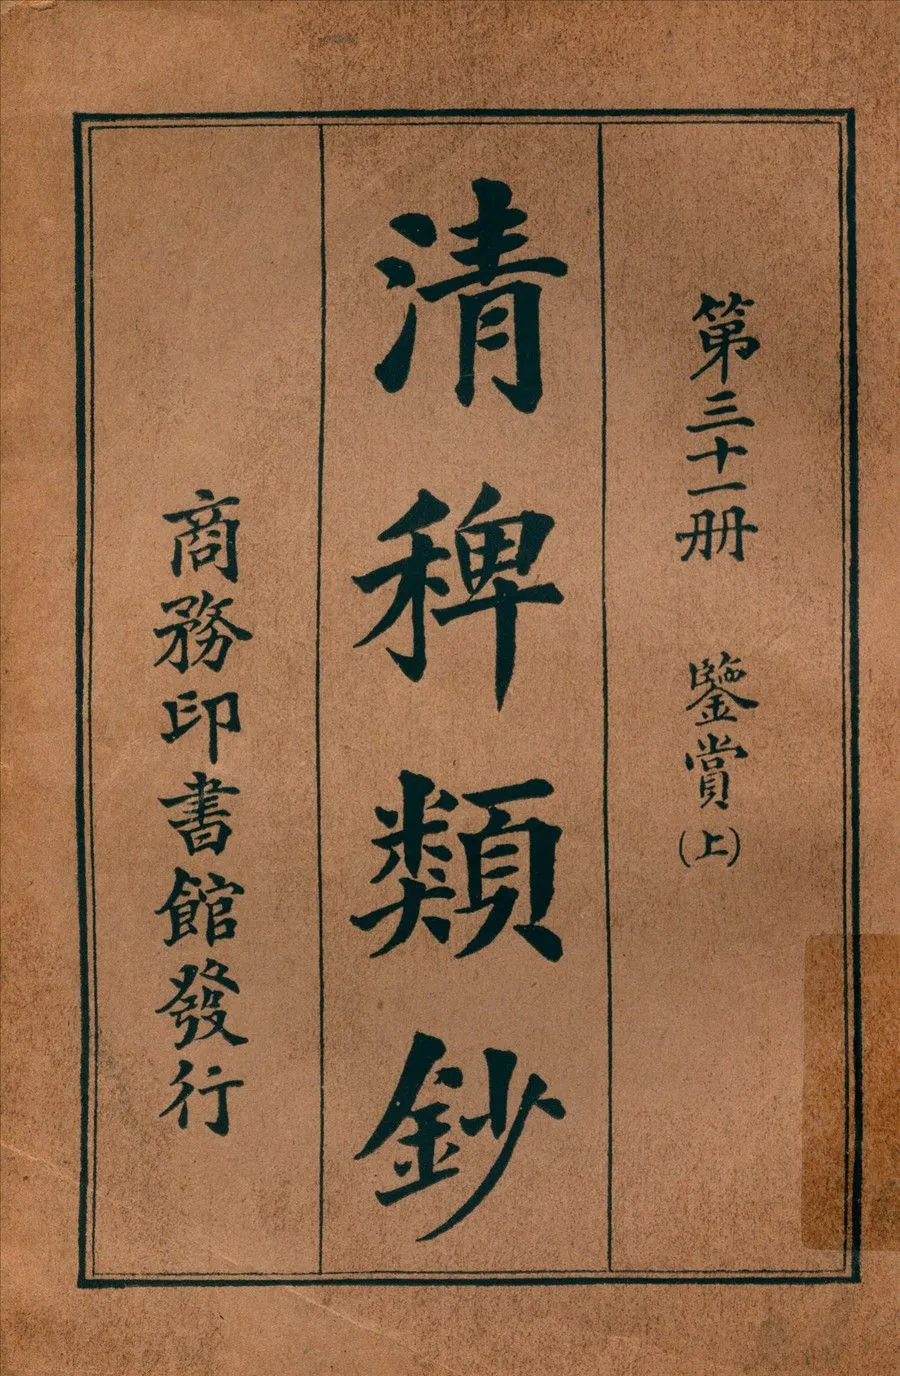 第三十一册 鑒賞(上)
清稗類鈔
商務印書館發行